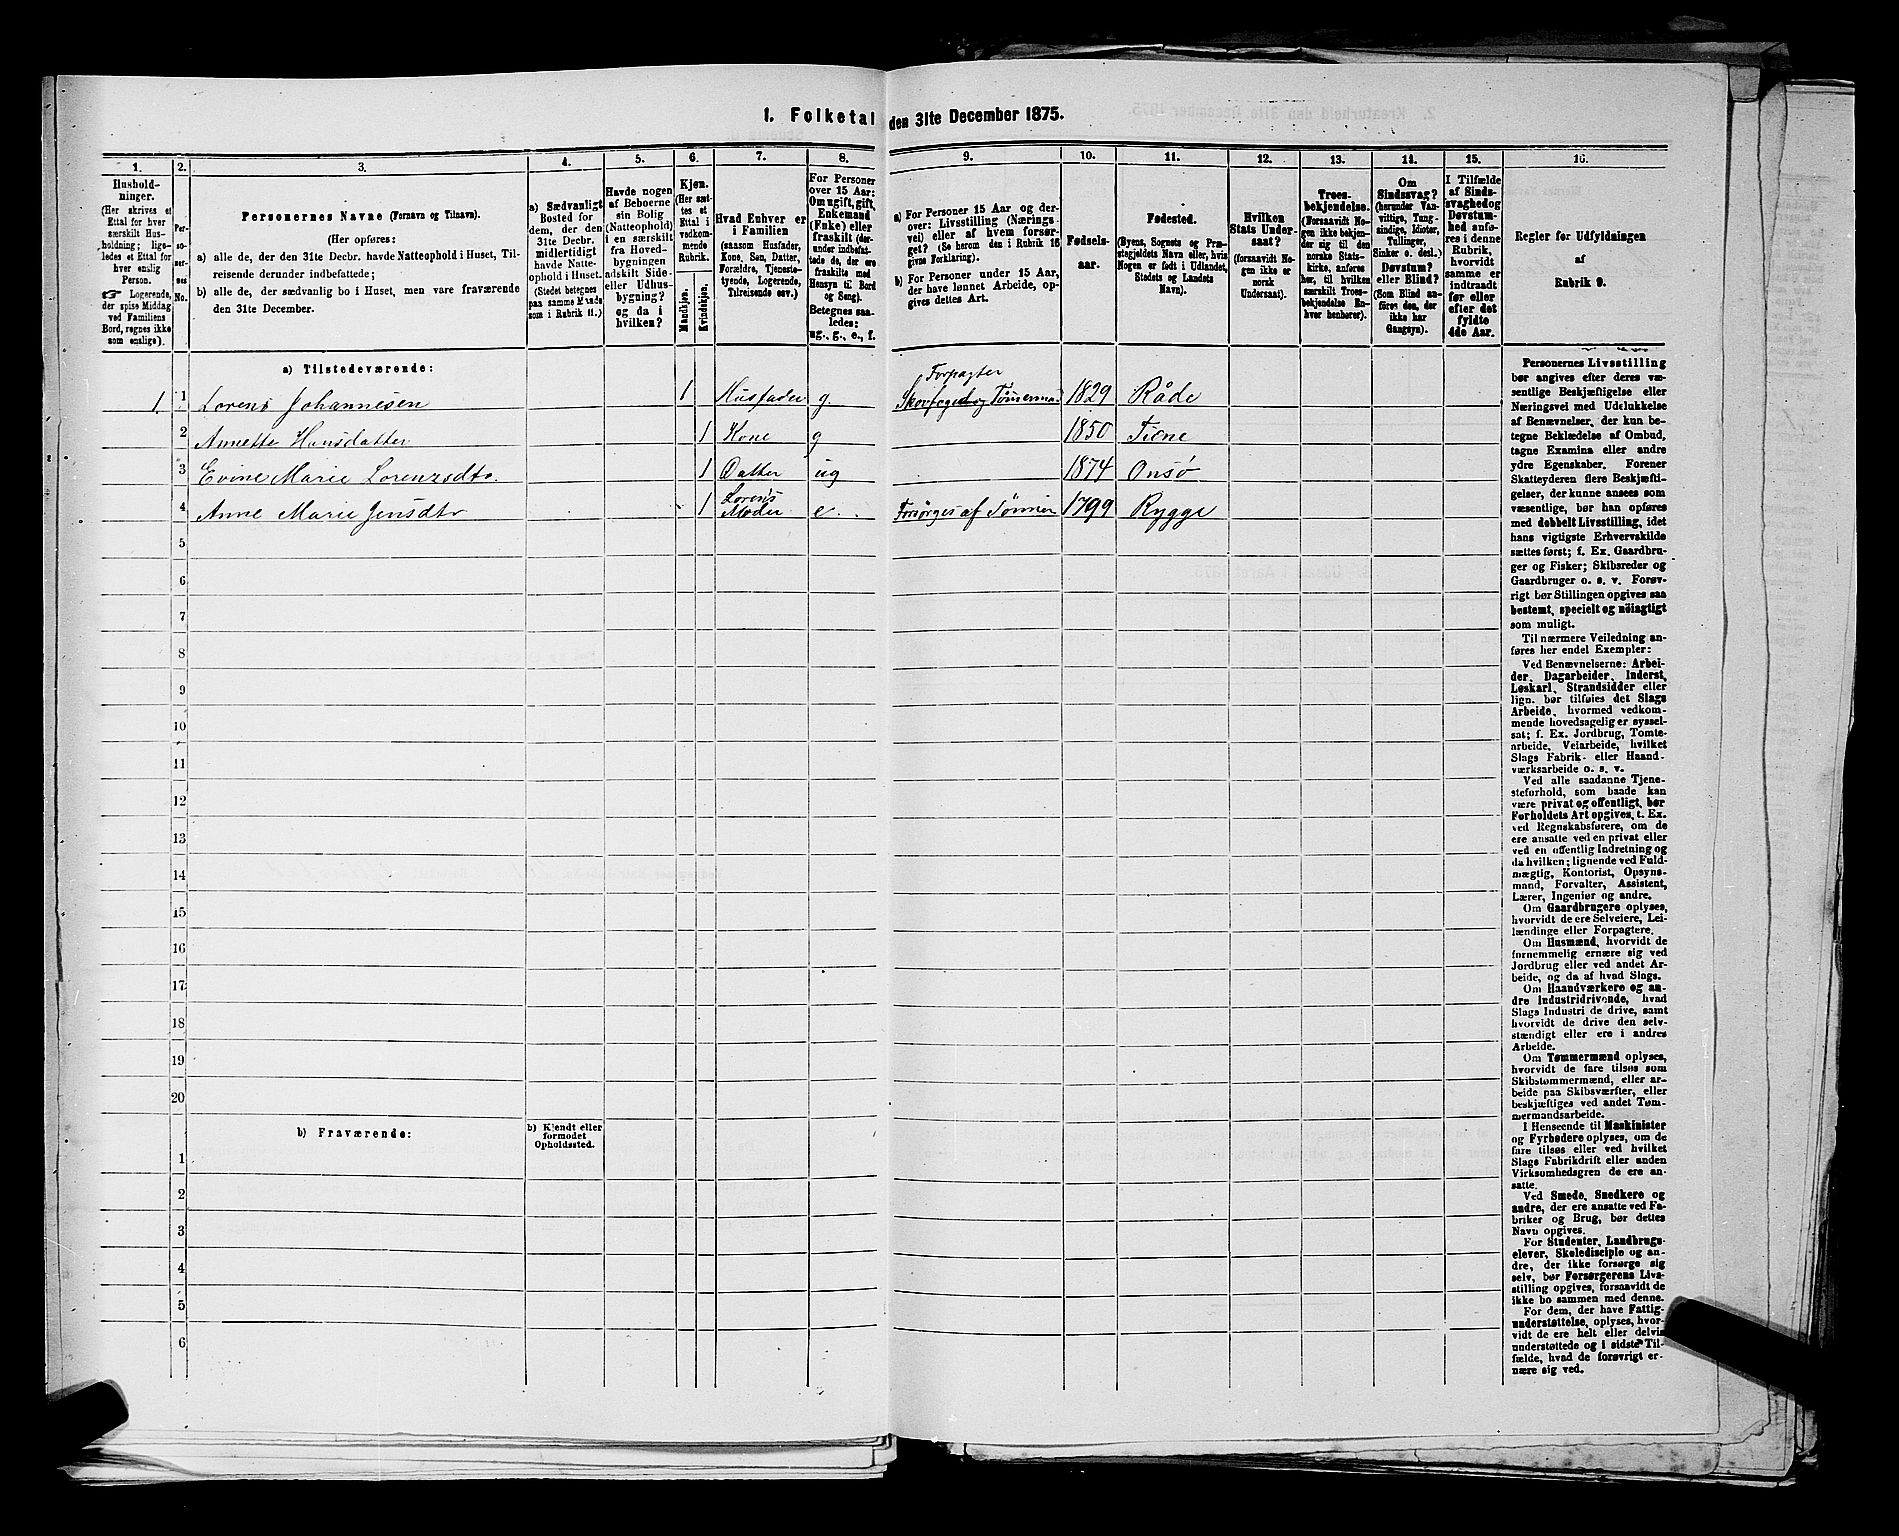 1. Folketal den 31te December 1875.
1. 2. 3. 4. 5. 6. 7. 8. 9. 10. 11. 12. 13. 14. 15. 16.
Hushold-
ninger.
(Her skrives et
Ettal for hver
særskilt Hus-
holdning; lige-
ledes et Ettal for
hver enslig
Person.
☞ Logerende,
der spise Middag
ved Familiens
Bord, regnes ikke
som enslige).
Per-
so-
ner-
nes
No.
Personernes Navne (Fornavn og Tilnavn).
(Her opføres:
a) alle de, der den 31te Decbr. havde Natteophold i Huset, Til-
reisende derunder indbefattede;
b) alle de, der sædvanlig bo i Huset, men vare fraværende
den 31te December.
a) Sædvanligt
Bosted for
dem, der den
31te Decbr.
midlertidigt
havde Natte-
ophold i Huset.
(Stedet betegnes
paa samme Maade
som i Rubrik 11.)
Havde nogen
af Beboerne
sin Bolig
(Natteophold)
i en særskilt
fra Hoved-
bygningen
adskilt Side-
eller Udhus-
bygning?
og da i
hvilken?
Kjøn.
(Her sæt-
tes et
Ettal i
vedkom-
mende
Rubrik.
Mandkjøn.
Kvindekjøn.
Hvad Enhver er
i Familien
(saasom Husfader,
Kone, Søn, Datter,
Forældre, Tjeneste-
tyende, Logerende,
Tilreisende osv.)
For Personer
over 15 Aar:
Om ugift, gift,
Enkemand
(Enke) eller
fraskilt (der-
under indbefat-
tede de, der ere
fraskilte med
Hensyn til Bord
og Seng).
Betegnes saa-
ledes:
ug., g., e., f.
a) For Personer 15 Aar og der-
over: Livsstilling (Nærings-
vei) eller af hvem forsør-
get? (Se herom den i Rubrik 16
givne Forklaring).
b) For Personer under 15 Aar,
der have lønnet Arbeide, op-
gives dettes Art.
Fødsels-
aar.
Fødested.
(Byens, Sognets og Præ-
stegjeldets Navn eller, hvis
Nogen er født i Udlandet,
Stedets og Landets
Navn).
Hvilken
Stats Under-
saat?
(forsaavidt No-
gen ikke er
norsk
Undersaat).
Troes-
bekjendelse.
(Forsaavidt No-
gen ikke bekjen-
der sig til den
norske Stats-
kirke, anføres
her, til hvilken
særskilt Troes-
bekjendelse En-
hver henhører).
Om
Sindssvag?
(herunder Van-
vittige, Tung-
sindige, Idioter,
Tullinger,
Sinker o. desl.)
Døvstum?
eller Blind?
(Som Blind an-
føres den, der
ikke har
Gangsyn).
I Tilfælde
af Sinds-
svaghed og
Døvstum-
hed anfø-
res i denne
Rubrik,
hvorvidt
samme er
indtraadt
før eller
efter det
fyldte
4de Aar.
Regler for Udfyldningen
af
Rubrik 9.
a) Tilstedeværende:
1 1 Lorens Johannesen 1 Husfader g. Forpagter Skovfoged og Tømmerma. 1829 Råde
2 Annette Hansdatter 1 Kone g 1850 Tiene
3 Evine Marie Lorenzsdtr. 1 Datter ug 1874 Onsø
4 Anne Marie Jensdtr 1 Lorens Moder e. Forsørges af Sønnen 1799 Rygge
5
6
7
8
9
10
11
12
13
14
15
16
17
18
19
20
b) Fraværende:
b) Kjendt eller
formodet
Opholdssted.
1
2
3
4
5
6
Personernes Livsstilling
bør angives efter deres væ-
sentlige Beskjæftigelse eller
Næringsvei med Udelukkelse
af Benævnelser, der kun be-
tegne Beklædelse af Ombud,
tagne Examina eller andre
ydre Egenskaber. Forener
Skatteyderen flere Beskjæfti-
gelser, der kunne ansees som
væsentlige, bør han opføres
med dobbelt Livsstilling, idet
hans vigtigste Erhvervskilde
sættes først; f. Ex. Gaardbru-
ger og Fisker; Skibsreder og
Gaardbruger o. s. v. Forøv-
rigt bør Stillingen opgives saa
bestemt, specielt og nöiagtigt
som muligt.
Til nærmere Veiledning an-
føres her endel Exempler:
Ved Benævnelserne: Arbei-
der, Dagarbeider, Inderst,
Løskarl, Strandsidder eller
lign. bør tilføies det Slags
Arbeide, hvormed vedkom-
mende hovedsagelig er syssel-
sat; f. Ex. Jordbrug, Tomte-
arbeide, Veiarbeide, hvilket
Slags Fabrik- eller Haand-
værksarbeide o. s. v.
Ved alle saadanne Tjene-
steforhold, som baade kan
være privat og offentligt, bør
Forholdets Art opgives, t. Ex.
ved Regnskabsførere, om de
ere ansatte ved en privat eller
ved en offentlig Indretning og
da hvilken; lignende ved Fuld-
mægtig, Kontorist, Opsyns-
mand, Forvalter, Assistent,
Lærer, Ingeniør og andre.
Om Gaardbrugere oplyses,
hvorvidt de ere Selveiere, Lei-
lændinge eller Forpagtere.
Om Husmænd, hvorvidt de
fornemmelig ernære sig ved
Jordbrug eller ved andet Ar-
beide, og da af hvad Slags.
Om Haandværkere og an-
dre Industridrivende, hvad
Slags Industri de drive, samt
hvorvidt de drive den selv-
stændigt eller ere i andres
Arbeide.
Om Tømmermænd oplyses,
hvorvidt de fare tilsøs som
Skibstømmermænd, eller ar-
beide paa Skibsværfter, eller
beskjæftiges ved andet Tøm-
mermandsarbeide.
I Henseende til Maskinister
og Fyrbødere oplyses, om de
fare tilsøs eller ved hvilket
Slags Fabrikdrift eller anden
Virksomhedsgren de ere an-
satte.
Ved Smede, Snedkere og
andre, der ere ansatte ved Fa-
briker og Brug, bør dettes
Navn opgives.
For Studenter, Landbrugs-
elever, Skoledisciple og an-
dre, der ikke forsørge sig
selv, bør Forsørgerens Livs-
stilling opgives, forsaavidt de
ikke bo sammen med denne.
For dem, der have Fattig-
understøttelse, oplyses, hvor-
vidt de ere helt eller delvis
understøttede og i sidste Til-
fælde, hvad de forøvrigt er-
nære sig ved.